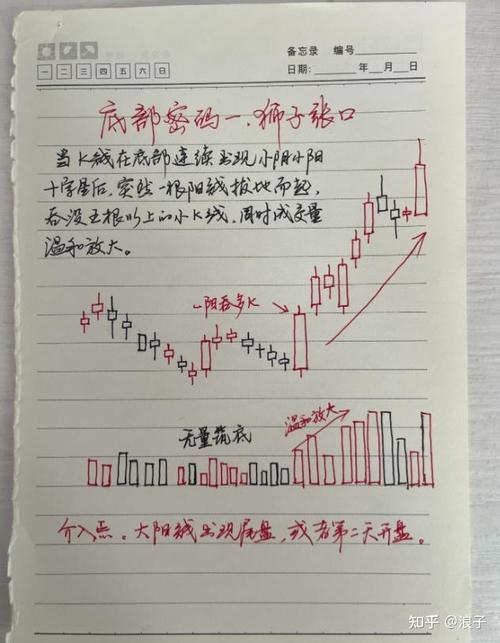 备忘录 编号
一 二 三 四 五 六 日
日期： 年 月 日
底部密码一、狮子张口
当K线在底部连续出现小阴小阳
十字星后，突然一根阳线拔地而起，
吞没五根以上的小K线，同时成交量
温和放大。
一阳吞多K
无量筑底
温和放大
介入点。大阳线出现尾盘，或者第二天开盘。
知乎 @浪子